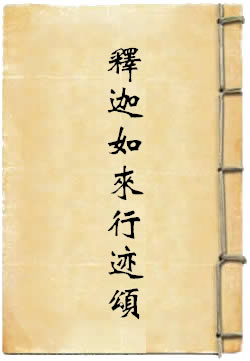 釋迦如來行迹頌